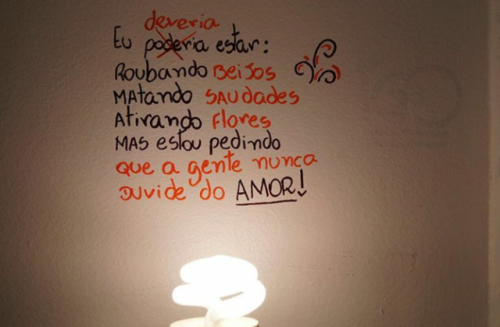 deveria
Eu poderia estar:
Roubando BeiJos
MAtando SAUDADES
Atirando Flores
MAS estou pedindo
que a gente nunca
Duvide do AMOR!